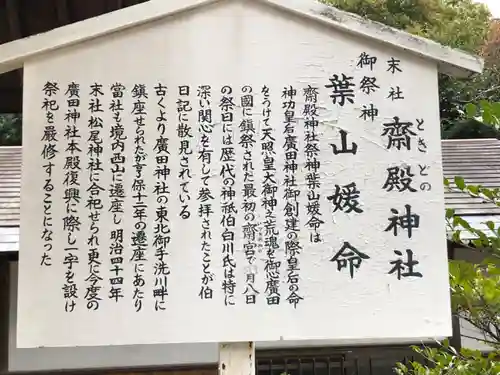 末社
ときとの
齋殿神社
御祭神
葉山媛命
齋殿神社祭神葉山媛命は
神功皇后廣田神社御創建の際皇后の命
をうけて天照皇大御神之荒魂を御心廣田
の國に鎮祭された最初の齋宮で 月八日
の祭日には歴代の神祇伯白川氏は特に
深い関心を有して参拝されたことが伯
日記に散見されている
古くより廣田神社の東北御手洗川畔に
鎮座せられたが享保十二年の遷座にあたり
當社も境内西山に遷座し明治四十四年
末社松尾神社に合祀せられ更に今度の
廣田神社本殿復興に際し一宇を設け
祭祀を厳修することになった